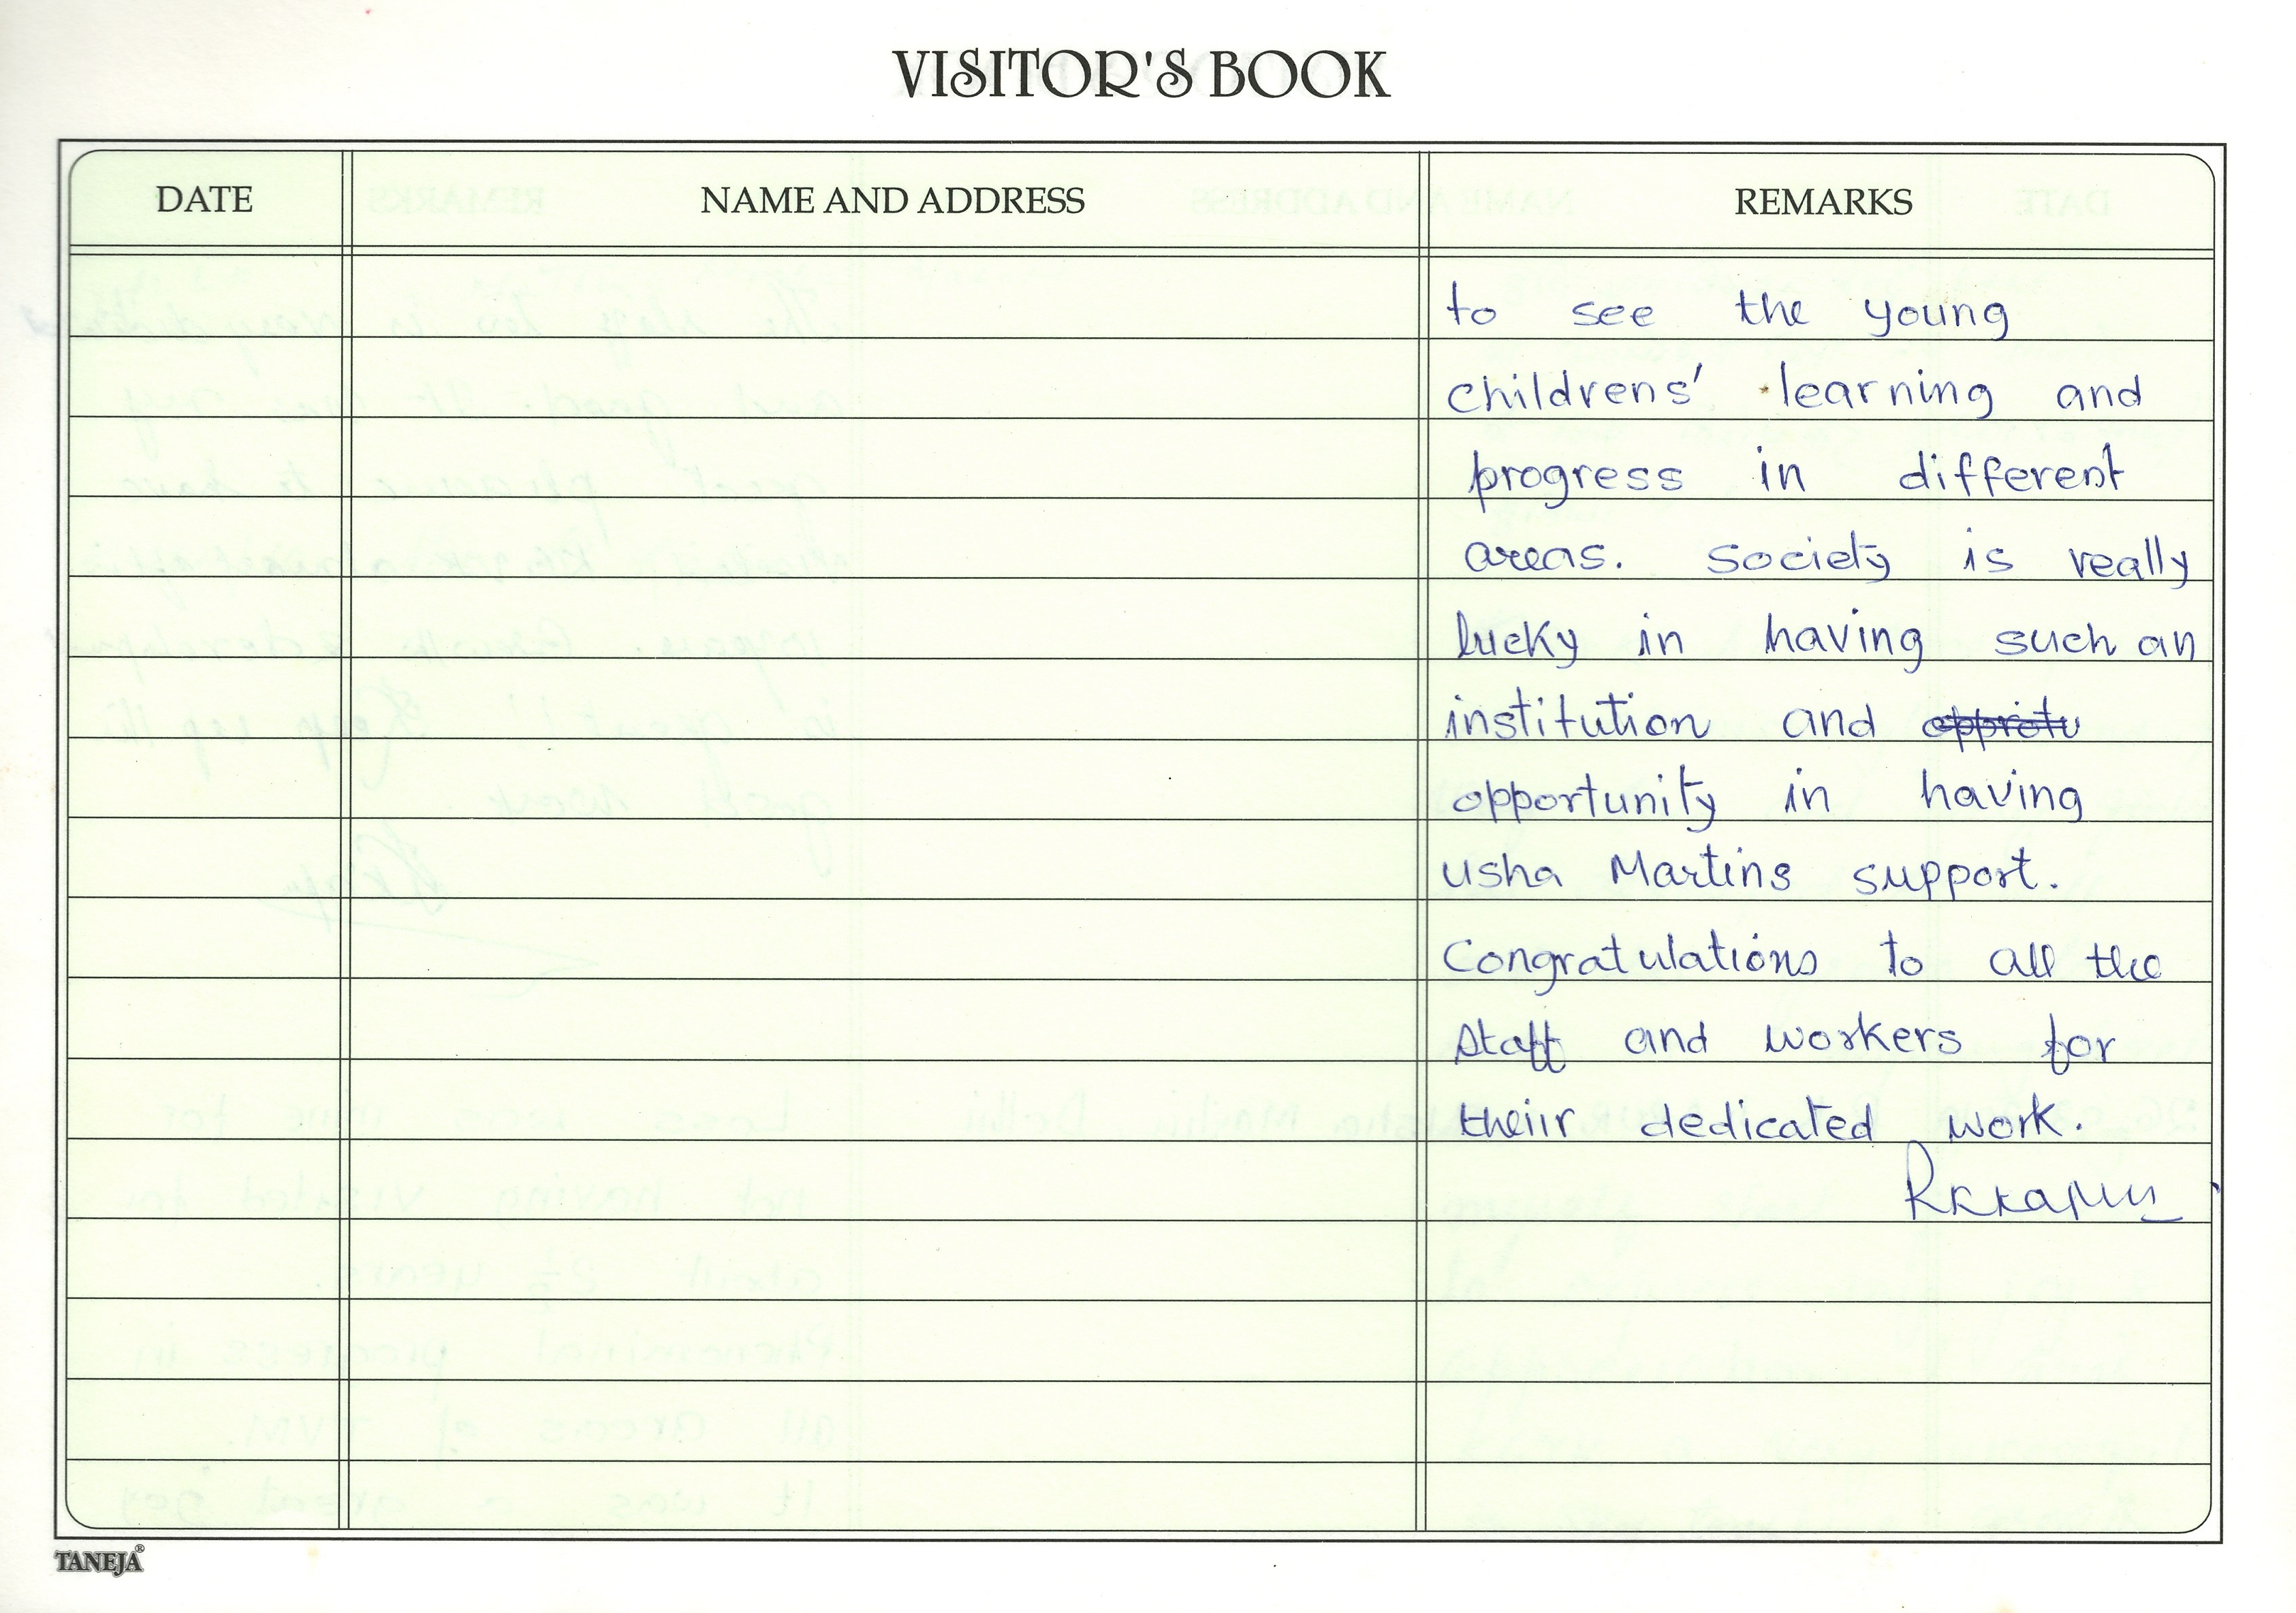 VISITOR'S BOOK
DATE NAME AND ADDRESS REMARKS
to see the young
childrens' learning and
progress in different
areas. Society is really
lucky in having such an
institution and
opportunity in having
usha Martins support.
Congratulations to all the
staff and workers for
theiir dedicated work.
TANEJA®